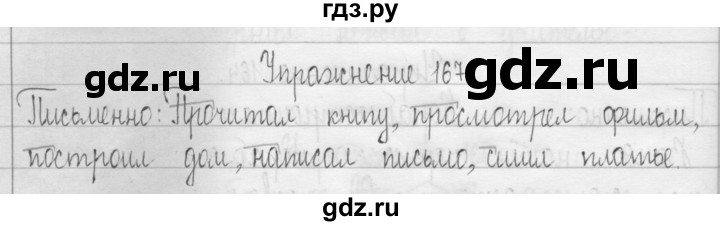 гдз.ру
gdz.ru
gdz.ru
Упражнение 167
Письменно: Прочитал книгу, просмотрел фильм,
gdz.ru
gdz.ru
построил дом, написал письмо, сшил платье.
gdz.ru